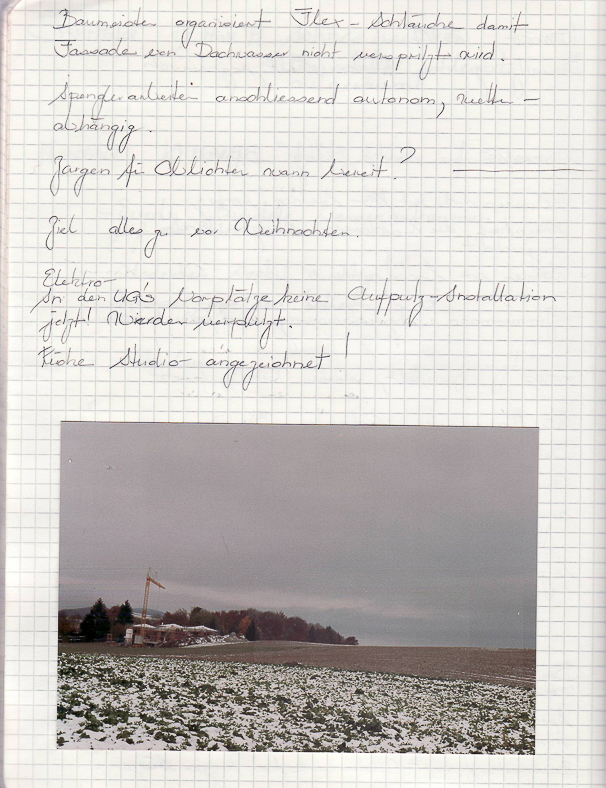 Baumeister organisiert Flex-Schläuche damit
Fassade von Dachwasser nicht verspritzt wird.
Spenglerarbeiten anschliessend autonom, wetter-
abhängig.
Zargen für Oblichter wann bereit?
Ziel alles zu vor Weihnachten.
Elektro-
In den UG's Vorplätze keine Aufputz-Installation
jetzt! Werden verputzt.
Küche Studio angezeichnet!